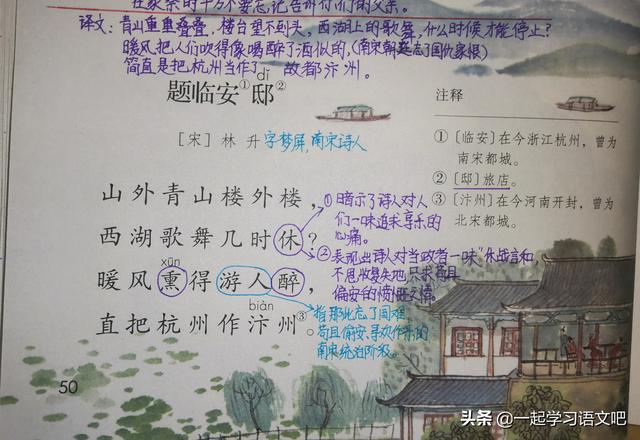 在家祭的千万不要忘记告诉你们的父亲。
译文:青山重重叠叠,楼台望不到头,西湖上的歌舞,什么时候才能停止?
暖风把人们吹得像喝醉了酒似的,(南宋朝廷忘了国仇家恨)
简直是把杭州当作了故都汴州。
dǐ
题临安①邸②
[宋] 林升 字梦屏,南宋诗人
山外青山楼外楼,
西湖歌舞几时休?
xūn
暖风熏得游人醉,
biàn
直把杭州作汴州③。
①暗示了诗人对人
们一味追求享乐的
心痛。
②表现出诗人对当政者一味"休战言和
不思收复失地,只求苟且
偏安的愤慨之情。
指那些忘了国难
苟且偏安、寻欢作乐的
南宋统治阶级。
注释
①〔临安〕在今浙江杭州,曾为
南宋都城。
②〔邸〕旅店。
③〔汴州〕在今河南开封,曾为
北宋都城。
50
头条 @一起学习语文吧